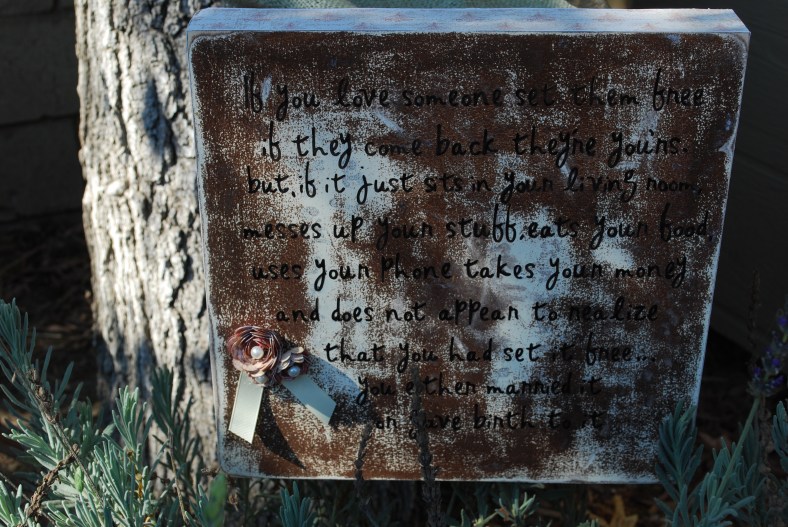 If you love someone set them free
if they come back they're yours.
but, if it just sits in your living room,
messes up your stuff, eats your food,
uses your phone takes your money
and does not appear to realize
that you had set it free...
you either married it
or gave birth to it